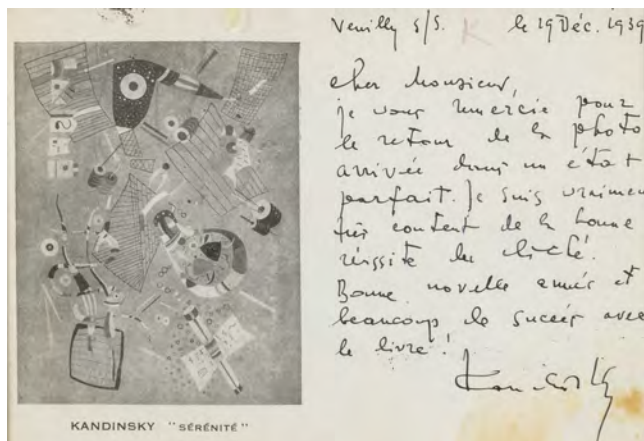 Neuilly s/S. le 19 Déc. 1939
cher Monsieur,
je vous remercie pour
le retour de la photo
arrivée dans un état
parfait. Je suis vraimen
très content de la bonne
réussite du cliché.
Bonne novelle année et
beaucoup de succès avec
le livre!
Kandinsky
KANDINSKY "SÉRÉNITÉ"